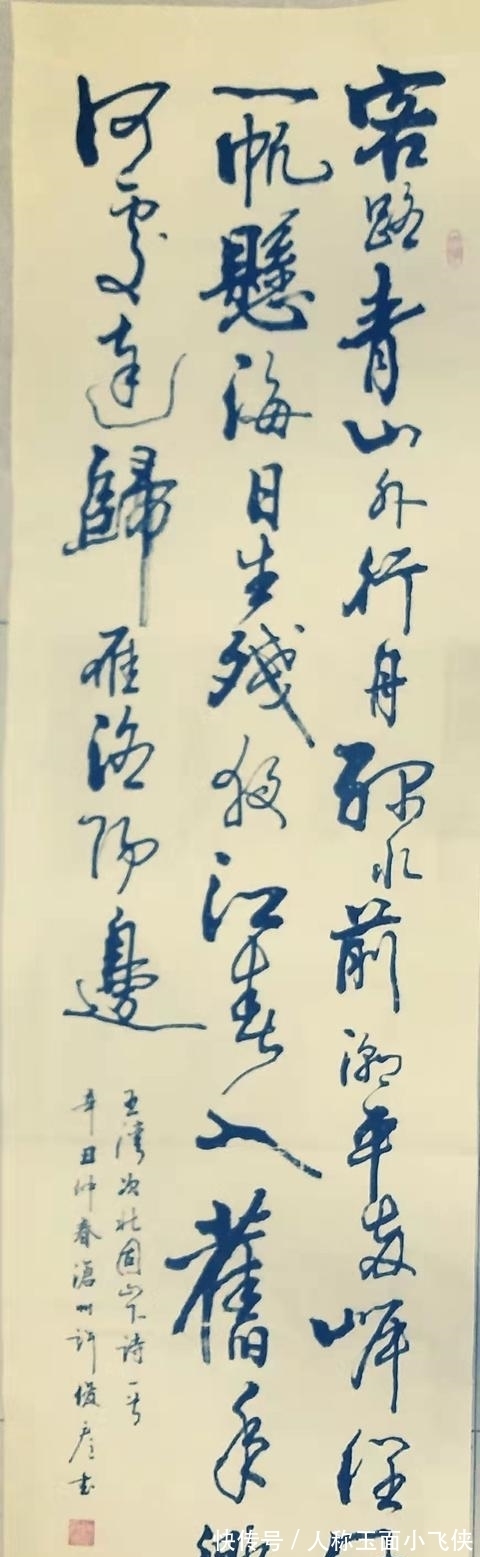 客路青山外行舟绿水前潮平两岸
一帆懸海日生殘夜江春入舊年
何處達歸雁洛陽邊
王湾次北固山下诗一首
辛丑仲春滄州許俊彦书
快传号 / 人称玉面小飞侠